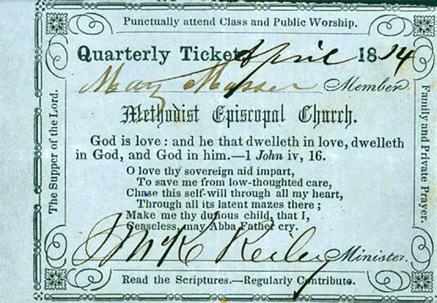 Punctually attend Class and Public Worship.
Quarterly Ticket April 18
May Member
Methodist Episcopal Church.
God is love: and he that dwelleth in love, dwelleth
in God, and God in him.—1 John iv, 16.
O love thy sovereign aid impart,
To save me from low-thoughted care,
Chase this self-will through all my heart,
Through all its latent mazes there;
Make me thy duteous child, that I,
Ceaseless, may Abba Father cry.
Minister.
Read the Scriptures.—Regularly Contribute.
The Supper of the Lord.
Family and Private Prayer.